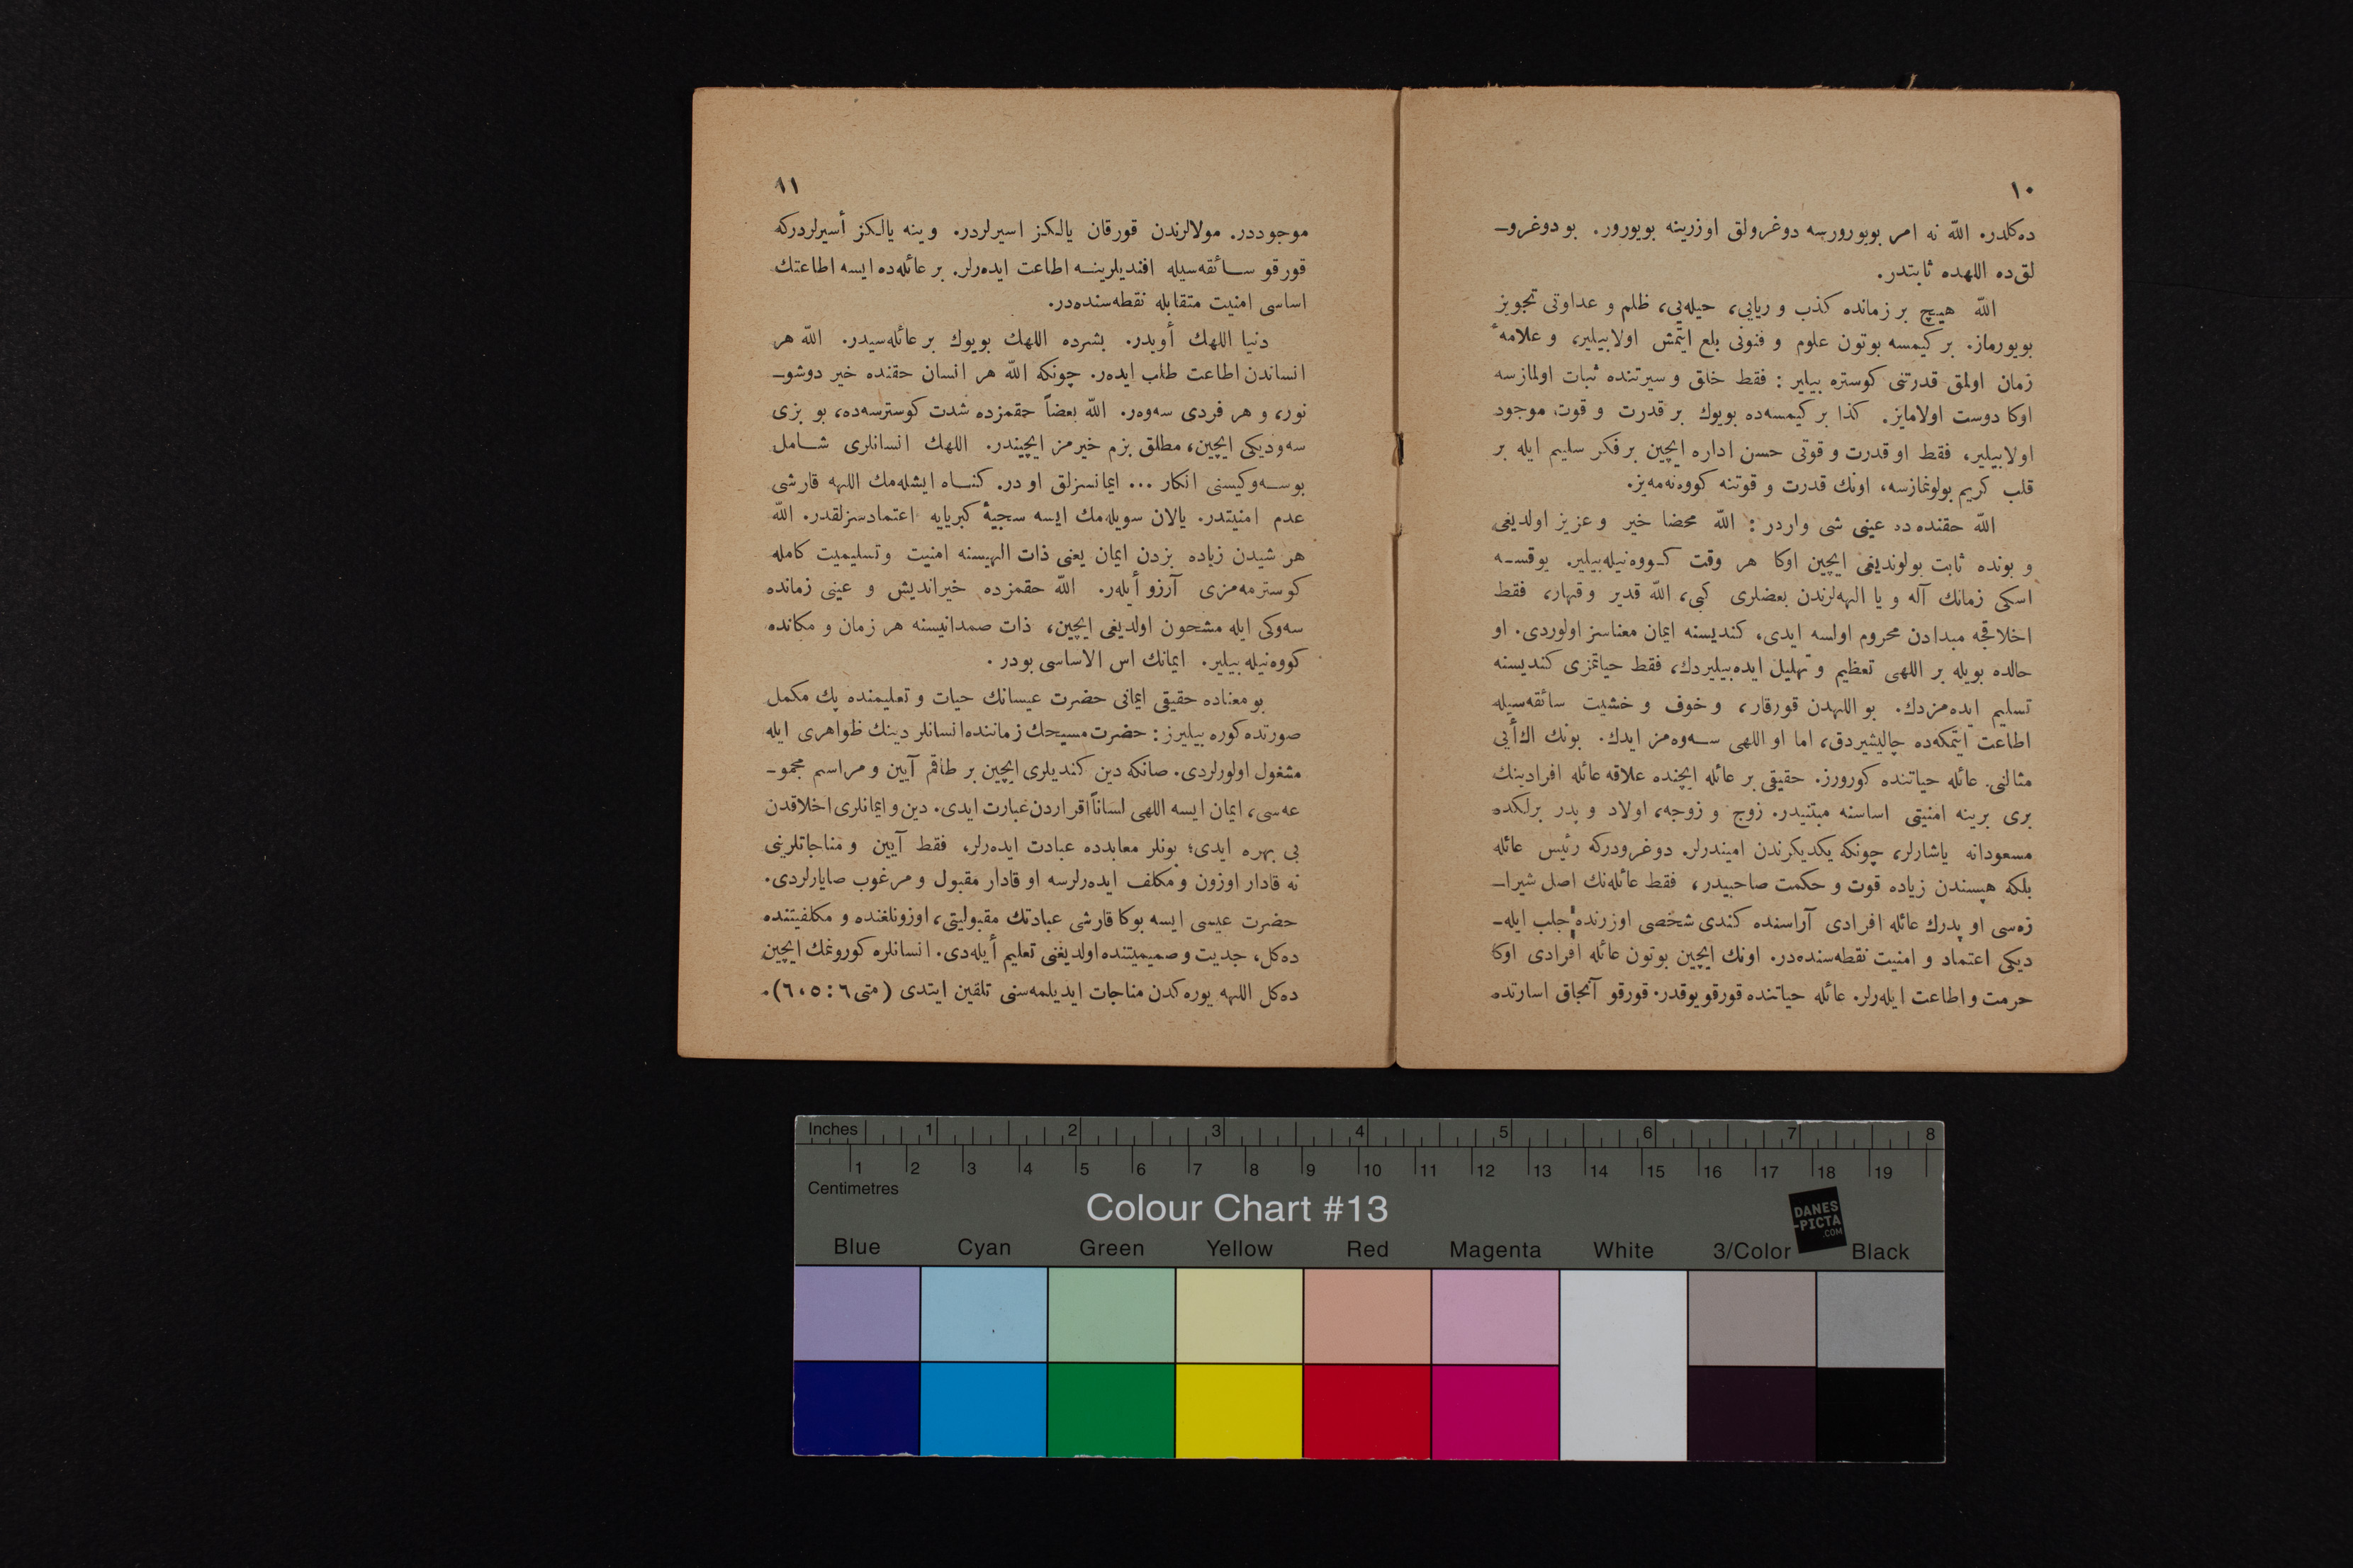 ١٠
ده‌كلدر. اللّه نه امر بويورورسه دوغرولق اوزرينه بويورور. بو دوغروـ
لق‌ده اللهده ثابتدر.
اللّه هيچ بر زمانده كذب و ريايى، حيله‌يى، ظلم و عداوتى تجويز
بويورماز. بر كيمسه بوتون علوم و فنونى بلع ايتمش اولابيلير، و علامهٔ
زمان اولمق قدرتنى كوستره بيلير : فقط خلق و سيرتنده ثبات اولمازسه
اوكا دوست اولامايز. كذا بر كيمسه‌ده بويوك بر قدرت و قوت موجود
اولابيلير، فقط او قدرت و قوتى حسن اداره ايچين بر فكر سليم ايله بر
قلب كريم بولونمازسه، اونك قدرت و قوتنه كووه‌نه‌مه‌يز.
اللّه حقنده ده عينى شى واردر : اللّه محضا خير و عزيز اولديغى
و بونده ثابت بولونديغى ايچين اوكا هر وقت كـووه‌نيله‌بيلير. يوقســه
اسكى زمانك آله و يا الهه‌لرندن بعضلرى كبى، اللّه قدير و قهار، فقط
اخلاقجه مبدادن محروم اولسه ايدى، كنديسنه ايمان معناسز اولوردى. او
حالده بويله بر اللهى تعظيم و تهليل ايده‌بيليردك، فقط حياتمزى كنديسنه
تسليم ايده‌مزدك. بو اللهدن قورقار، و خوف و خشيت سائقه‌سيله
اطاعت ايتمكه‌ده چاليشيردق، اما او اللهى ســه‌وه‌مز ايدك. بونك اك أيى
مثالنى عائله حياتنده كورورز. حقيقى بر عائله ايچنده علاقه عائله افرادينك
برى برينه امنيتى اساسنه مبتنيدر. زوج و زوجه، اولاد و پدر برلكده
مسعودانه ياشارلر، چونكه يكديكرندن اميندرلر. دوغرودركه رئيس عائله
بلكه هپسندن زياده قوت و حكمت صاحبيدر، فقط عائله‌نك اصل شيراـ
زه‌سى او پدرك عائله افرادى آراسنده كندى شخصى اوزرنده جلب ايله‌ـ
ديكى اعتماد و امنيت نقطه‌سنده‌در. اونك ايچين بوتون عائله افرادى اوكا
حرمت و اطاعت ايله‌رلر. عائله حياتنده قورقو يوقدر. قورقو آنجاق اسارتده
١١
موجوددر. مولالرندن قورقان يالكز اسيرلردر. وينه يالكز أسيرلردركه
قورقو ســائقه‌سيله افنديلرينــه اطاعت ايده‌رلر. بر عائله‌ده ايسه اطاعتك
اساسى امنيت متقابله نقطه‌سنده‌در.
دنيا اللهك أويدر. بشرده اللهك بويوك بر عائله‌سيدر. اللّه هر
انساندن اطاعت طلب ايده‌ر. چونكه اللّه هر انسان حقنده خير دوشوـ
نور، و هر فردى سه‌وه‌ر. اللّه بعضاً حقمزده شدت كوسترسه‌ده، بو بزى
سه‌وديكى ايچين، مطلق بزم خيرمز ايچيندر. اللهك انسانلرى شــامل
بو ســه‌وكيسنى انكار ... ايمانسزلق او در. كنــاه ايشله‌مك اللهه قارشى
عدم امنيتدر. يالان سويله‌مك ايسه سجيهٔ كبريايه اعتمادسزلقدر. اللّه
هر شيدن زياده بزدن ايمان يعنى ذات الهيسنه امنيت و تسليميت كامله
كوسترمه‌مزى آرزو أيله‌ر. اللّه حقمزده خيرانديش و عينى زمانده
سه‌وكى ايله مشحون اولديغى ايچين، ذات صمدانيسنه هر زمان و مكانده
كووه‌نيله بيلير. ايمانك اس الاساسى بودر .
بو معناده حقيقى ايمانى حضرت عيسانك حيات و تعليمنده پك مكمل
صورتده كوره بيليرز : حضرت مسيحك زماننده انسانلر دينك ظواهرى ايله
مشغول اولورلردى. صانكه دين كنديلرى ايچين بر طاقم آيين و مراسم مجموـ
عه‌سى، ايمان ايسه اللهى لساناً اقراردن عبارت ايدى. دين و ايمانلرى اخلاقدن
بى بهره ايدى؛ بونلر معابدده عبادت ايده‌رلر، فقط آيين و مناجاتلرينى
نه قادار اوزون و مكلف ايده‌رلرسه او قادار مقبول و مرغوب صايارلردى.
حضرت عيسى ايسه بوكا قارشى عبادتك مقبوليتى، اوزونلغنده و مكلفيتنده
ده‌كل، جديت و صميميتنده اولديغنى تعليم أيله‌دى. انسانلره كورونمك ايچين
ده‌كل اللهه يوره‌كدن مناجات ايديلمه‌سنى تلقين ايتدى (متى ٦ : ٥، ٦).
Inches 1 2 3 4 5 6 7 8
1 2 3 4 5 6 7 8 9 10 11 12 13 14 15 16 17 18 19
Centimetres
Colour Chart #13
DANES
-PICTA
.COM
Blue Cyan Green Yellow Red Magenta White 3/Color Black